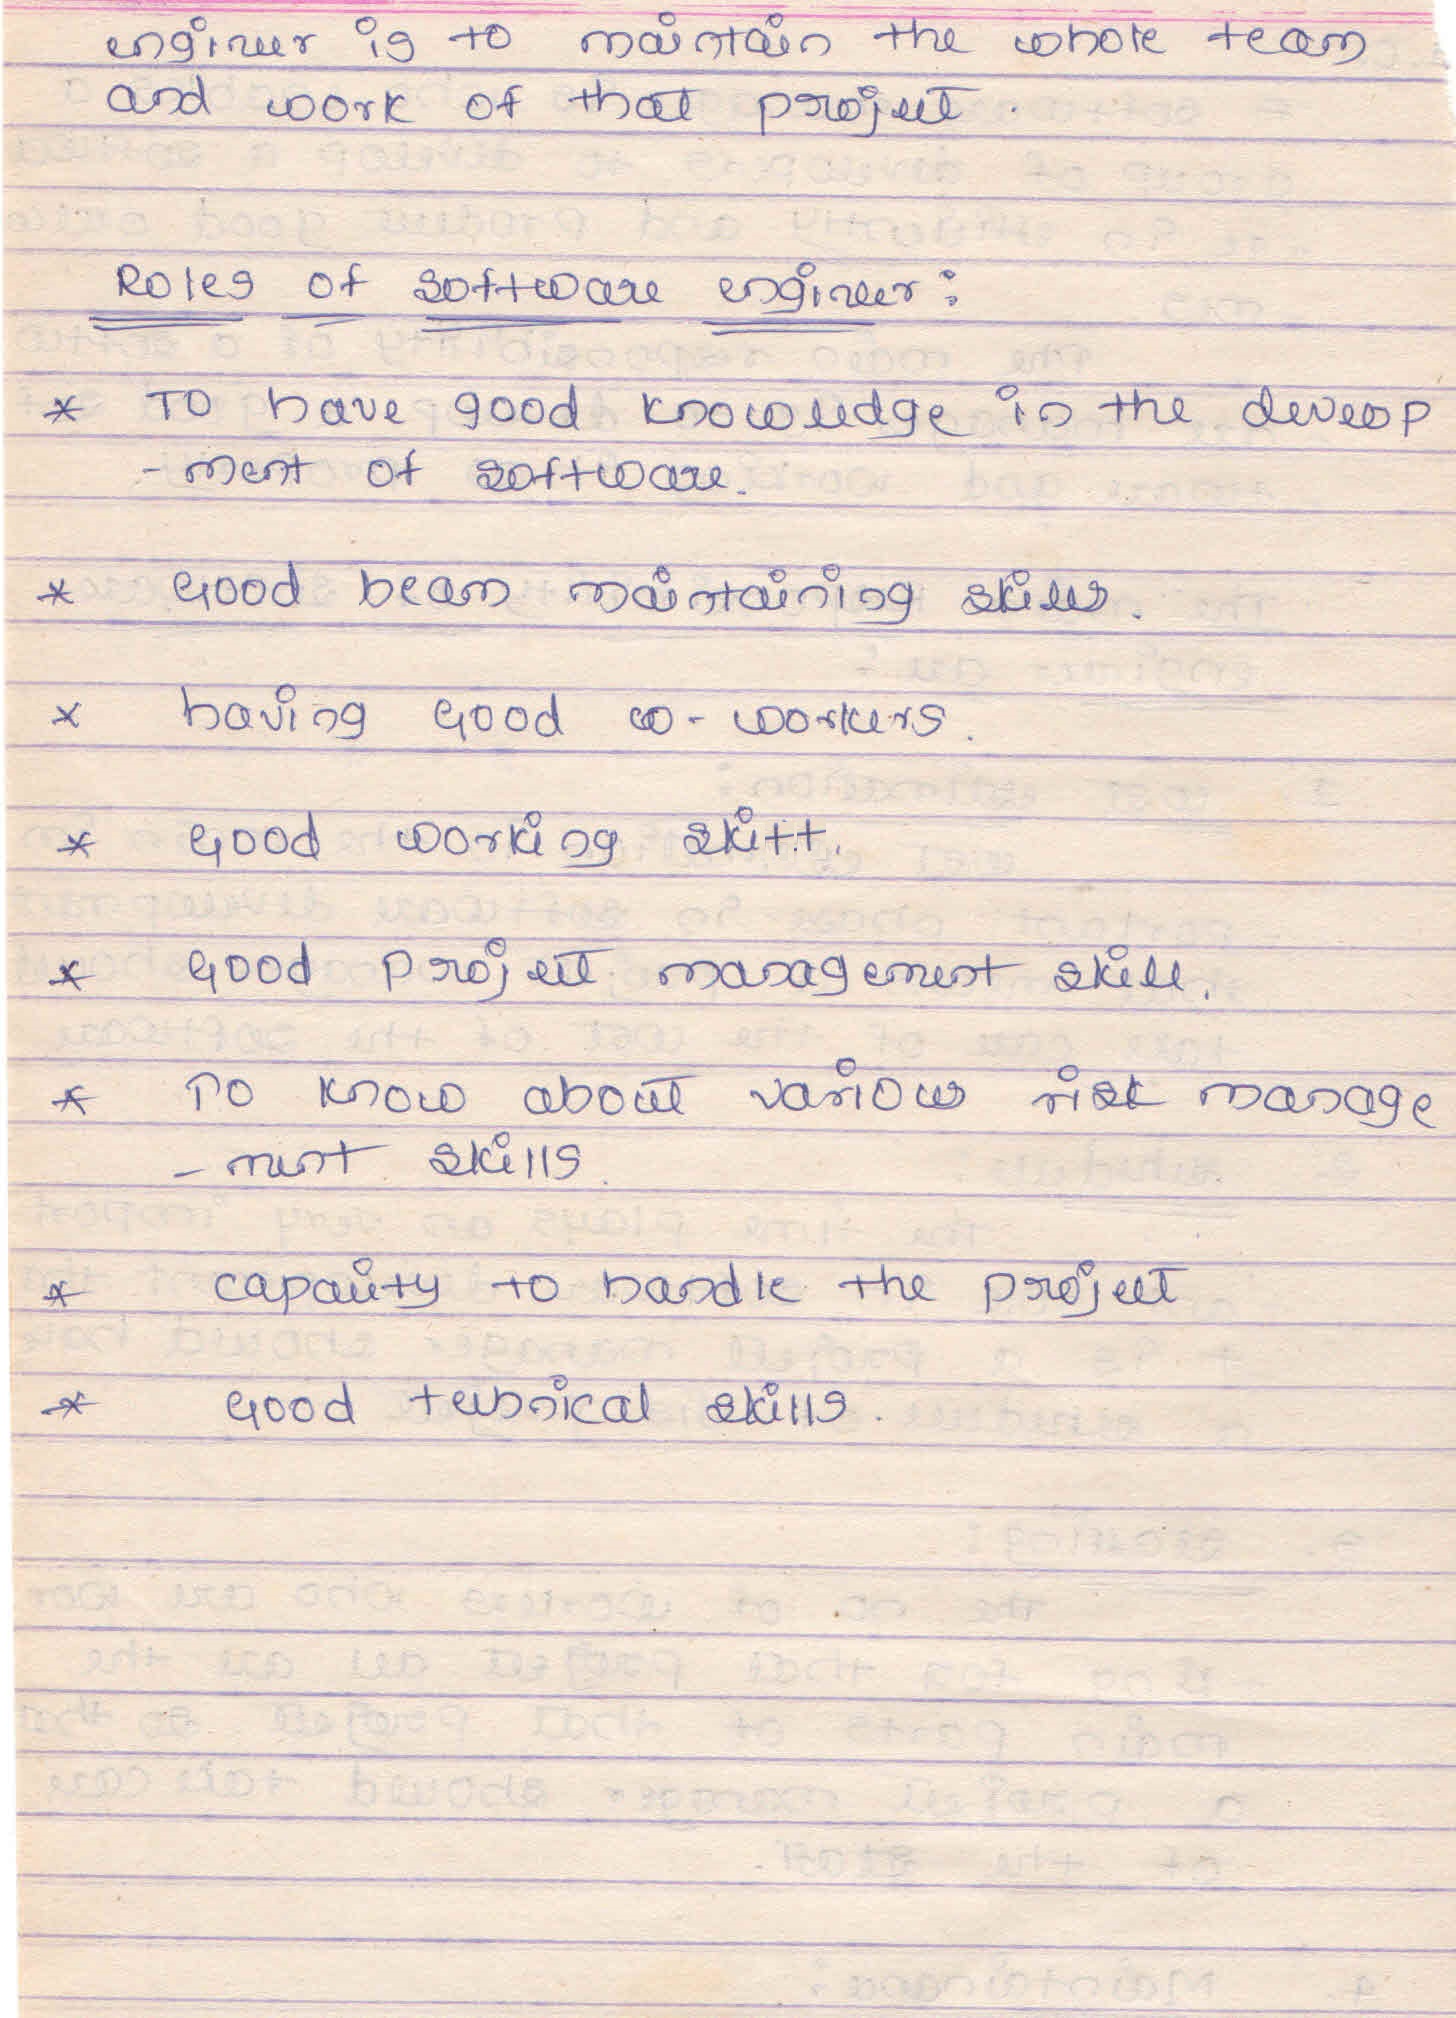 engineer is to maintain the whole team
and work of that project.
Roles of software engineer:
* To have good knowledge in the develop
-ment of software.
* Good beam maintaining skills.
* having Good co-workers.
* Good working skitt.
* Good project management skill.
* To know about various risk manage
-ment skills.
* capacity to handle the project
* Good technical skills.